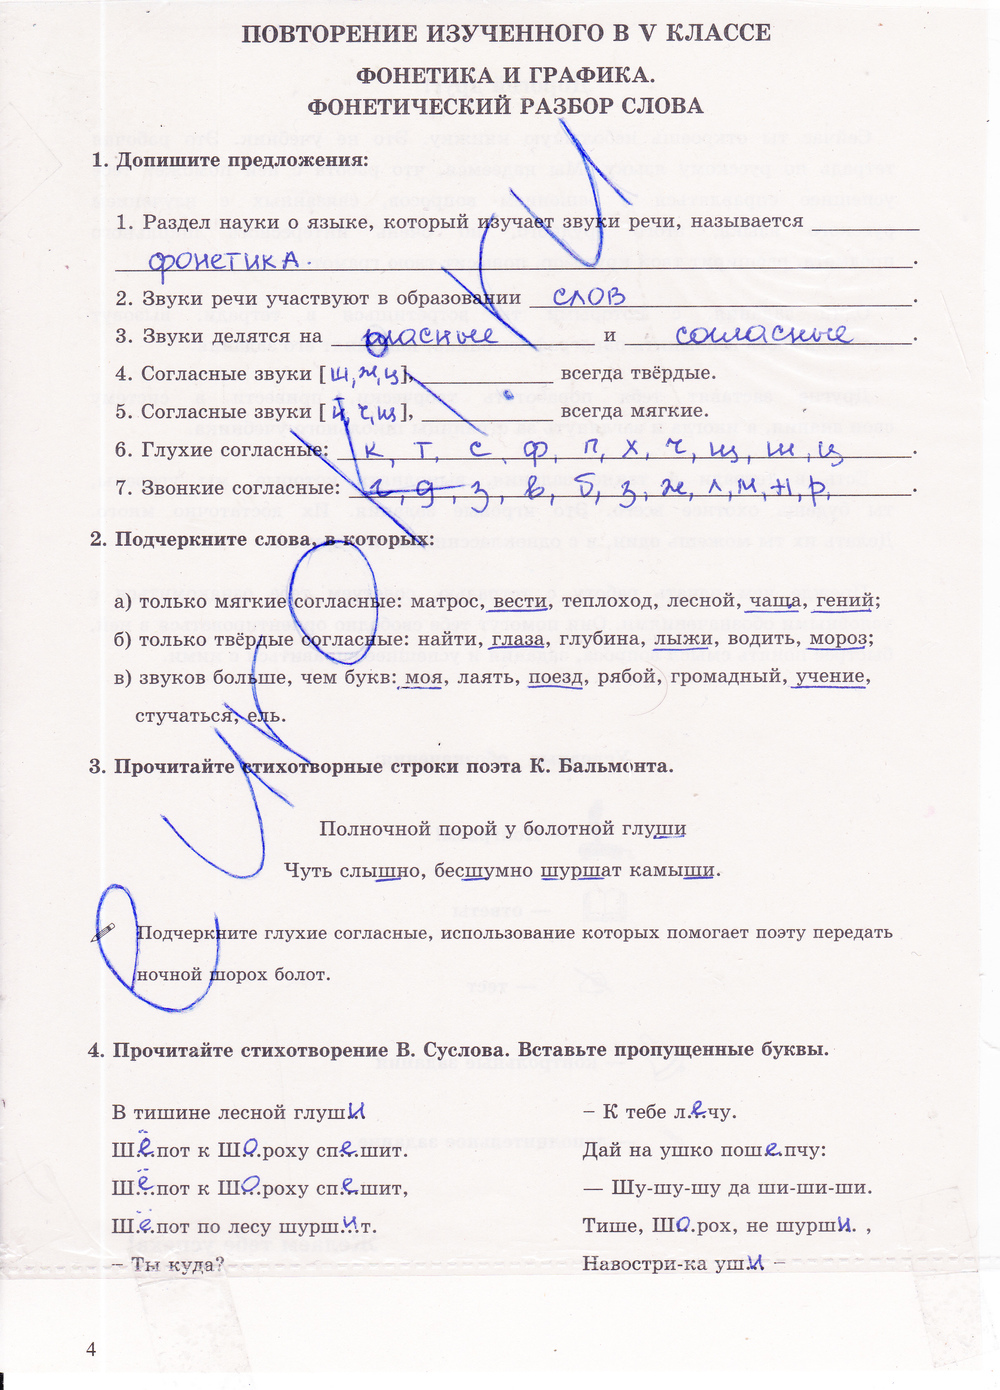 ПОВТОРЕНИЕ ИЗУЧЕННОГО В V КЛАССЕ
ФОНЕТИКА И ГРАФИКА.
ФОНЕТИЧЕСКИЙ РАЗБОР СЛОВА
1. Допишите предложения:
1. Раздел науки о языке, который изучает звуки речи, называется
фонетика.
2. Звуки речи участвуют в образовании слов.
3. Звуки делятся на гласные и согласные.
4. Согласные звуки [ш,ж,ц], всегда твёрдые.
5. Согласные звуки [й,ч,щ], всегда мягкие.
6. Глухие согласные: к, т, с, ф, п, х, ч, щ, ш, ц.
7. Звонкие согласные: г д, з, в, б, з, ж, л, м, н, р,.
2. Подчеркните слова, в которых:
а) только мягкие согласные: матрос, вести, теплоход, лесной, чаща, гений;
б) только твёрдые согласные: найти, глаза, глубина, лыжи, водить, мороз;
в) звуков больше, чем букв: моя, лаять, поезд, рябой, громадный, учение,
стучаться, ель.
3. Прочитайте стихотворные строки поэта К. Бальмонта.
Полночной порой у болотной глуши
Чуть слышно, бесшумно шуршат камыши.
Подчеркните глухие согласные, использование которых помогает поэту передать
ночной шорох болот.
4. Прочитайте стихотворение В. Суслова. Вставьте пропущенные буквы.
В тишине лесной глуши
Шёпот к Шороху спешит.
Шёпот к Шороху спешит,
Шёпот по лесу шуршит.
– Ты куда?
– К тебе лечу.
Дай на ушко пошепчу:
— Шу-шу-шу да ши-ши-ши.
Тише, Шорох, не шурши. ,
Навостри-ка уши –
4
euroki.ru